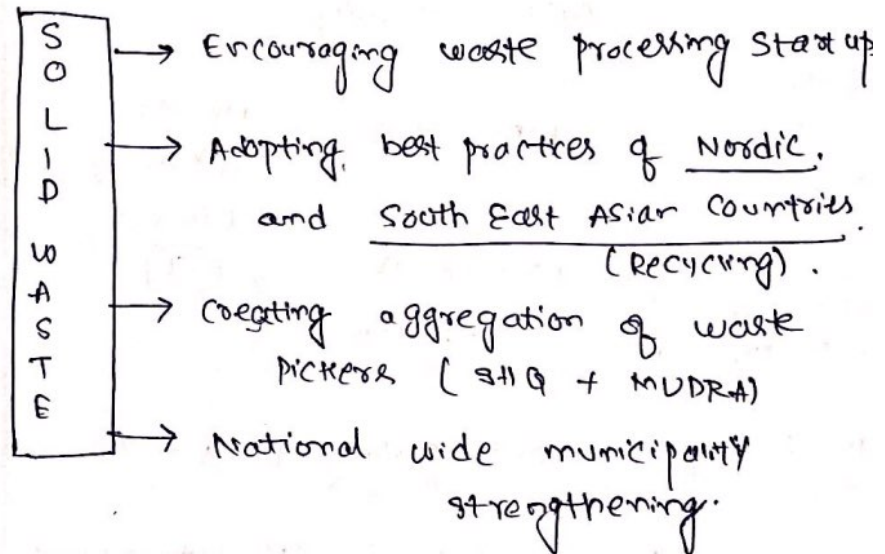 SOLID WASTE
→ Encouraging waste processing Start up
→ Adopting best practices of Nordic.
and South East Asian Countries.
(Recycling).
→ Creating aggregation of waste
pickers (SHG + MUDRA)
→ National wide municipality
strengthening.